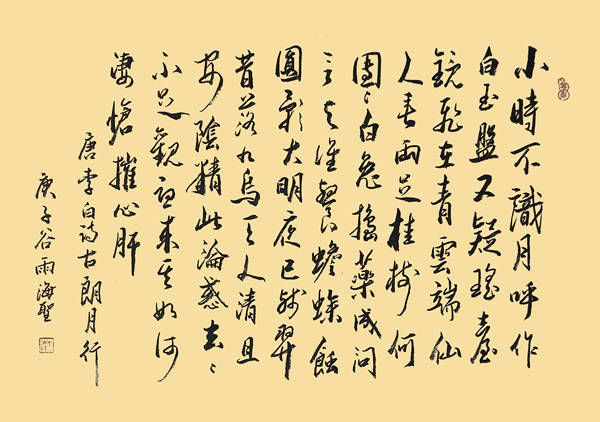 小時不識月呼作
白玉盤又疑瑤臺
鏡飛在青雲端仙
人垂兩足桂樹何
團々白兔搗藥成問
言与誰餐蟾蜍蝕
圓影大明夜已殘羿
昔落九烏天人清且
安陰精此淪惑去々
不足觀憂來其如何
淒愴摧心肝
唐李白詩古朗月行
庚子谷雨海聖